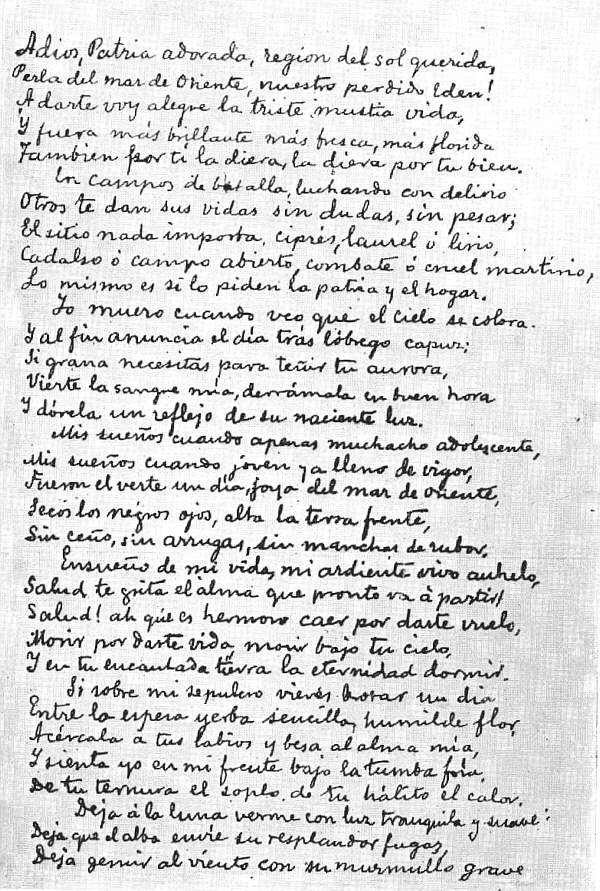 Adios, Patria adorada, region del sol querida,
Perla del mar de Oriente, nuestro perdido Eden!
A darte voy alegre la triste mustia vida,
Y fuera más brillante más fresca, más florida
Tambien por ti la diera, la diera por tu bien.
En campos de batalla, luchando con delirio
Otros te dan sus vidas sin dudas, sin pesar;
El sitio nada importa, ciprés, laurel ó lirio,
Cadalso ó campo abierto, combate ó cruel martirio,
Lo mismo es si lo piden la patria y el hogar.
Yo muero cuando veo que el cielo se colora
Y al fin anuncia el día trás lóbrego capuz;
Si grana necesitas para teñir tu aurora,
Vierte la sangre mía, derrámala en buen hora
Y dórela un reflejo de su naciente luz.
Mis sueños cuando apenas muchacho adolescente,
Mis sueños cuando joven ya lleno de vigor,
Fueron el verte un día, joya del mar de oriente,
Secos los negros ojos, alta la tersa frente,
Sin ceño, sin arrugas, sin manchas de rubor.
Ensueño de mi vida, mi ardiente vivo anhelo,
Salud te grita el alma que pronto va á partir!
Salud! ah que es hermoso caer por darte vuelo,
Morir por darte vida, morir bajo tu cielo,
Y en tu encantada tierra la eternidad dormir.
Si sobre mi sepulcro vieres brotar un dia
Entre la espesa yerba sencilla, humilde flor,
Acércala a tus labios y besa al alma mía,
Y sienta yo en mi frente bajo la tumba fria,
De tu ternura el soplo, de tu hálito el calor.
Deja á la luna verme con luz tranquila y suave:
Deja que el alba envíe su resplandor fugaz,
Deja gemir al viento con su murmullo grave